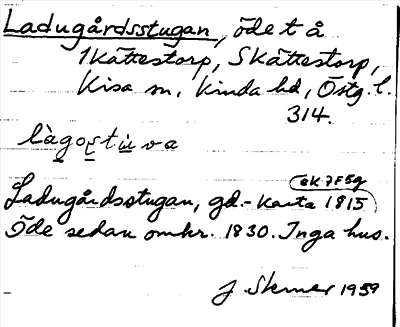 Ladugårdsstugan, öde t å
1 Kättestorp, Skättestorp,
Kisa sn, Kinda hd, Östg. l.
314.
làgoṣtùva
ek 7F5g
Ladugårdsstugan, gd.- Karta 1815
Öde sedan omkr. 1830. Inga hus.
J Sterner 1959